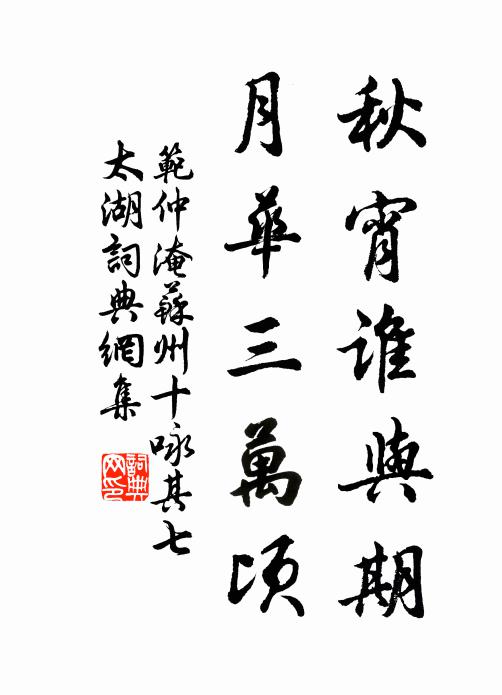 秋宵誰與期
月華三萬頃
範仲淹蘇州十咏其七
太湖詞典網集
詞典
网印